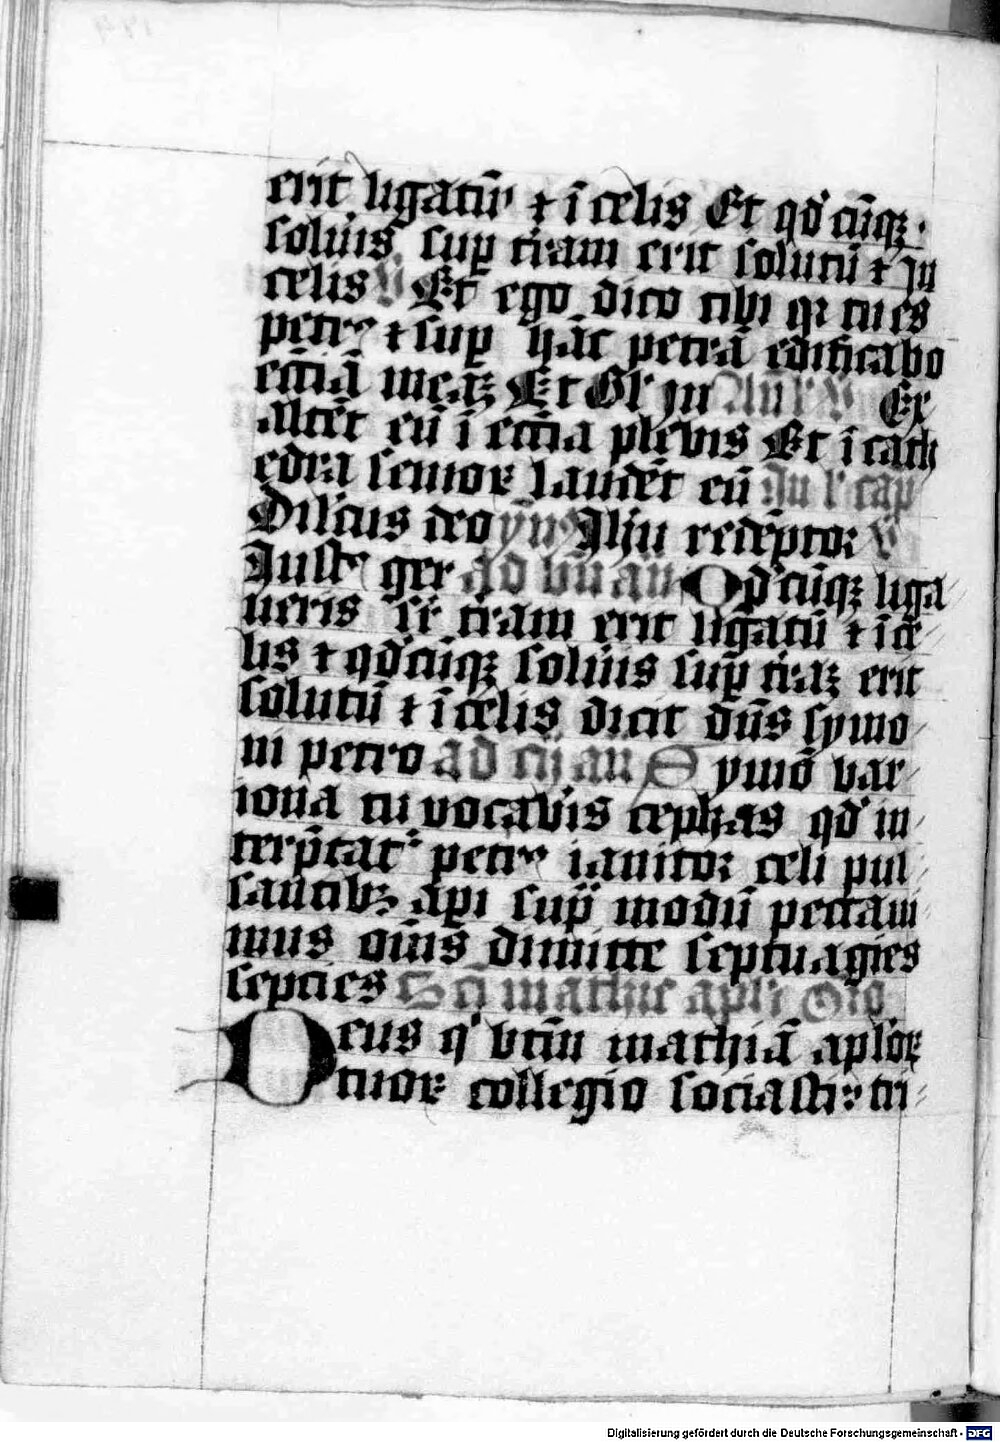 erit ligatū & ī celis Et qd cūqꝫ
soluis sup tiram erit solutū & in
celis V Et ego dico tibi qꝛ tu es
petrꝰ & sup hāc petrā edificabo
eccīā meaꝫ Et Gl in Ex
altēt eū ī eccīa plebis Et ī cath
edra senioꝝ laudēt eū In l cap
Dilcūs deo ymꝰ Ihu redēptoꝛ V
Justꝰ ger ad bn an Qdcūqꝫ liga
ueris sr tiram erit ligatū & ī ce
lis & qdcūqꝫ soluis sup tiraꝫ erit
solutū & ī celis dicit dūs symo
ni petro ad cū an Symō bar
iona tu vocabis cephas qd in
terp̄tatᷣ petrꝰ ianitoꝛ celi pul
santibꝫ api sup modū peccaui
mus oīis dimitte septuagies
septies Scī mathie apli Oro
Deus qͥ btīn mathiā aploꝝ
tuoꝝ collegio sociasti tri